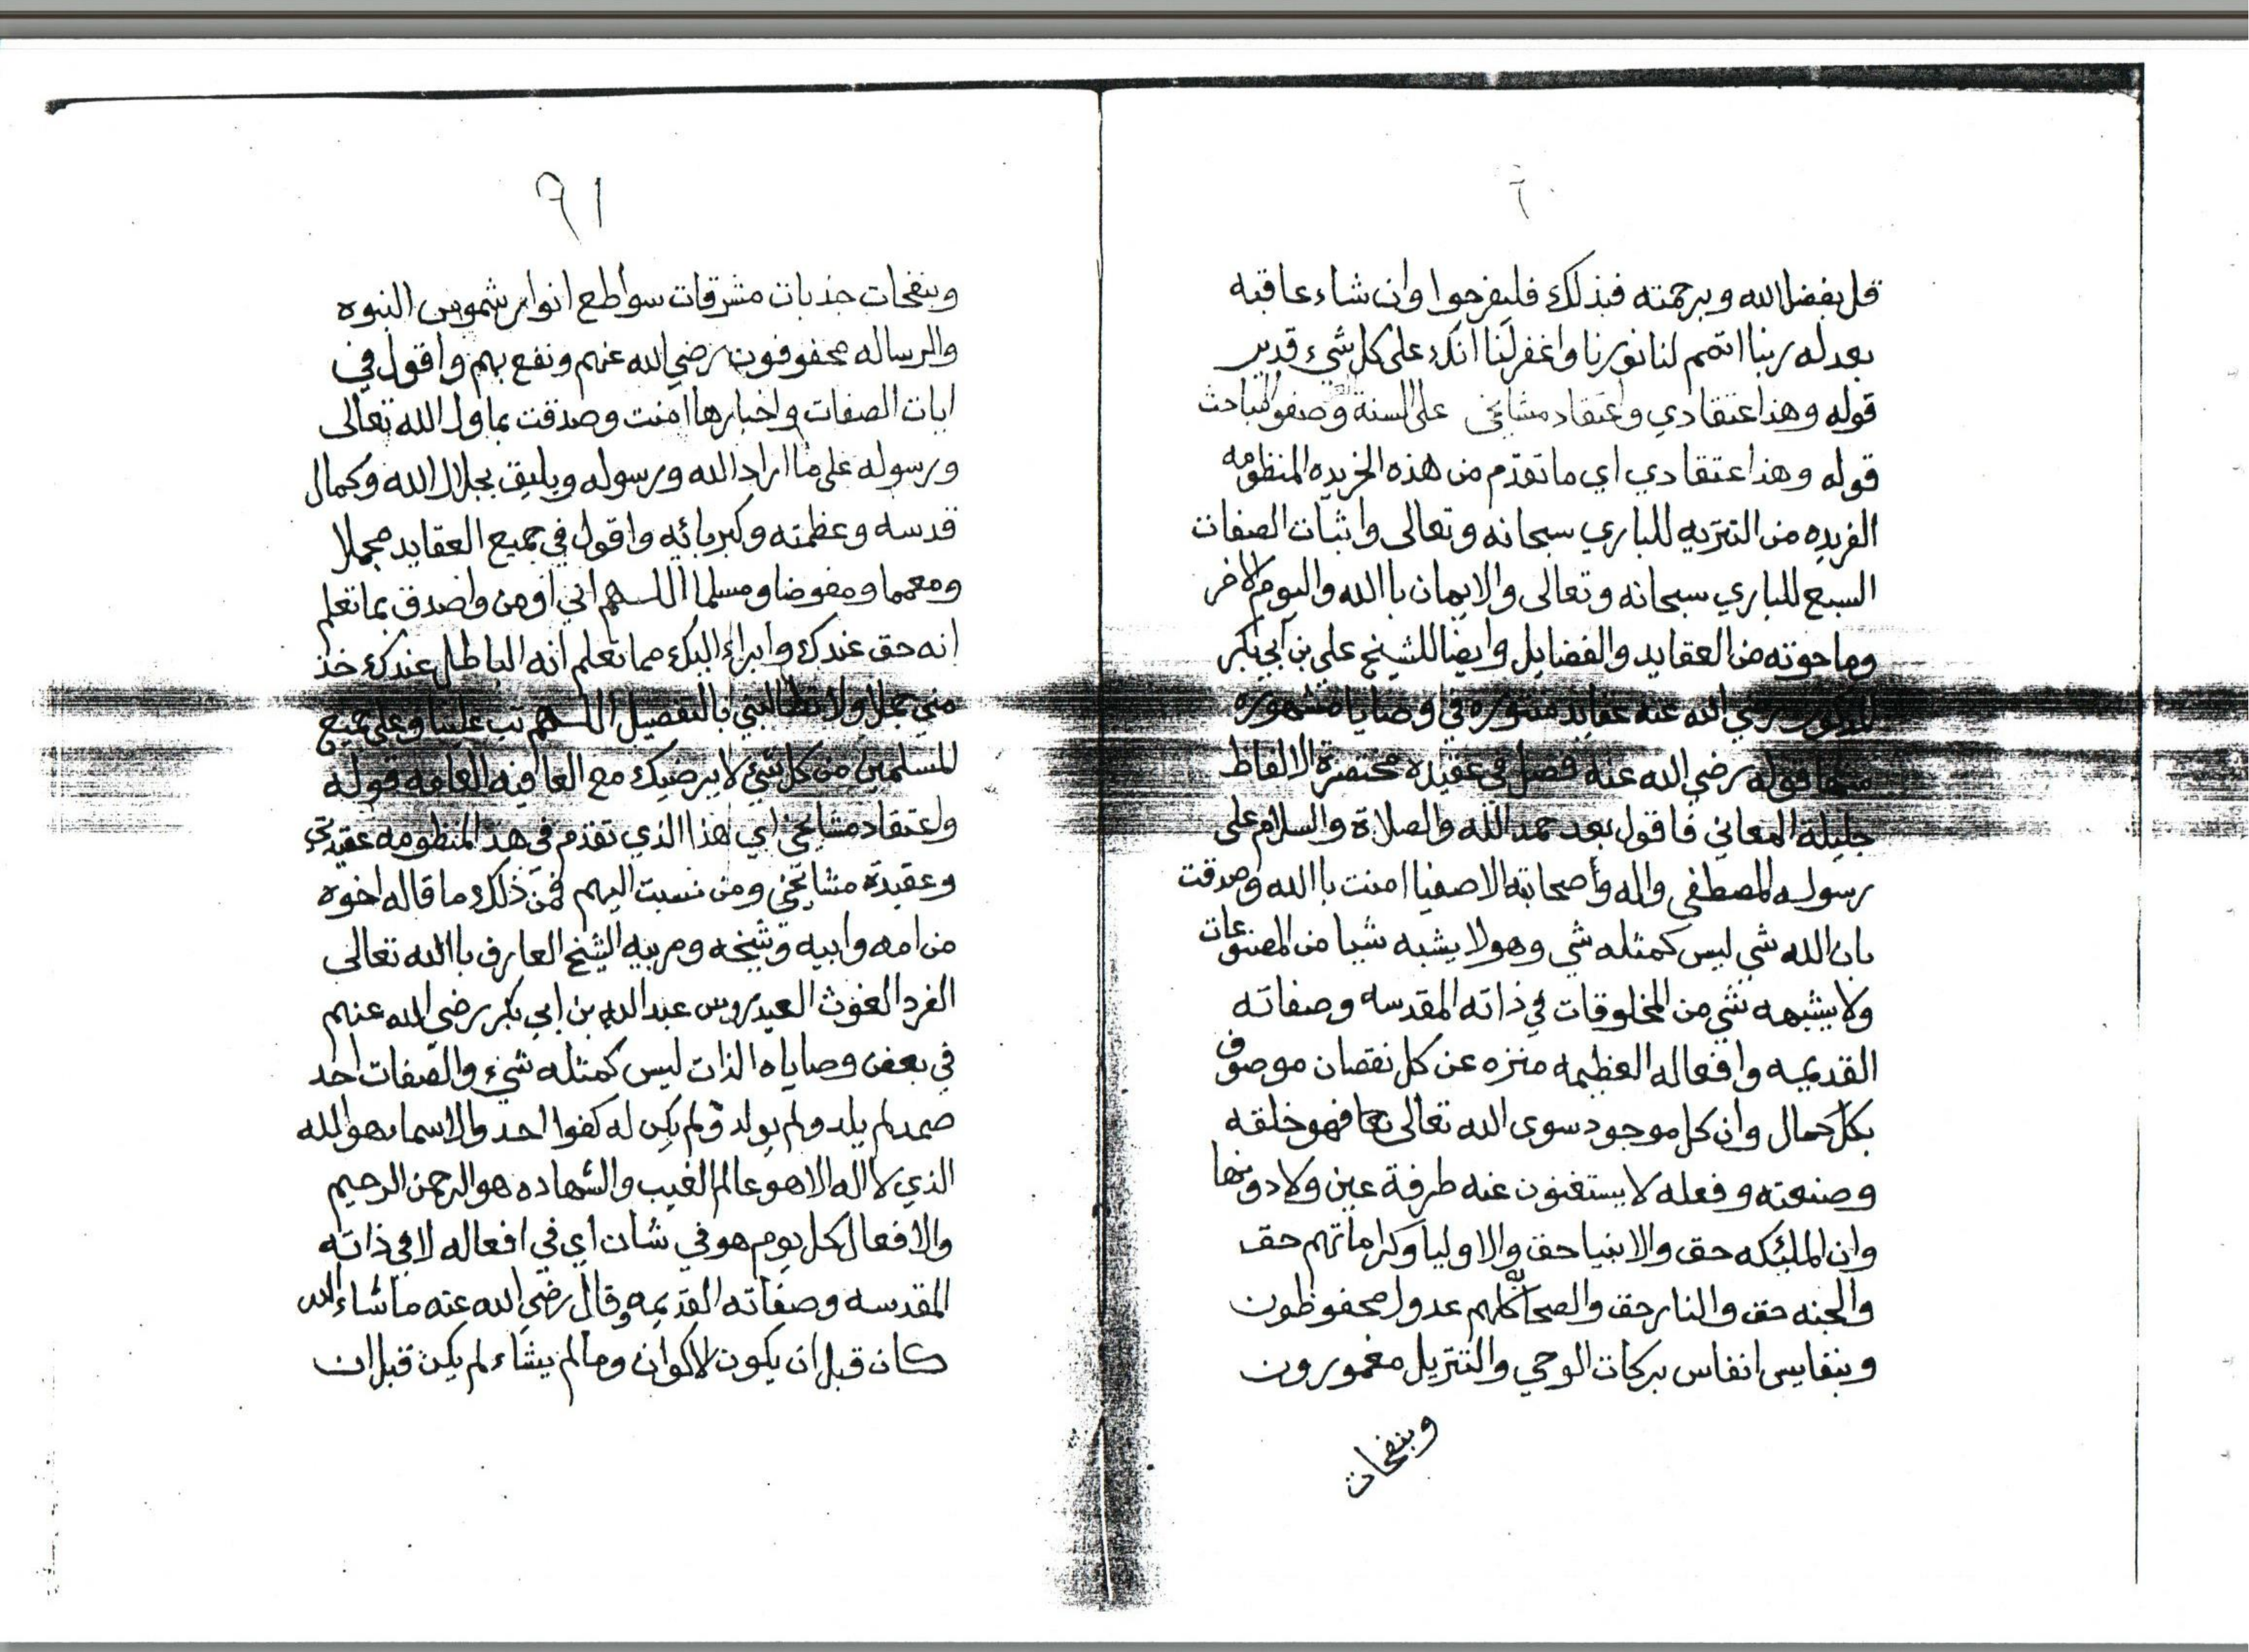 قل بفضل الله وبرحمته فبذلك فليفرحوا وان شاء عاقبه
بعدله ربنا اتمم لنا نورنا واغفر لنا انك على كل شيء قدير
قوله وهذا اعتقادي واعتقاد مشايخي على السنة وصفو المباحث
قوله وهذا اعتقادي اي ما تقدم من هذه الخريده المنظومه
الفريده من التنزيه للباري سبحانه وتعالى واثبات الصفات
السبع للباري سبحانه وتعالى والايمان باالله واليوم الاخر
وما حوته من العقايد والفضايل وايضا للشيخ علي بن ابي بكر
المذكور رضي الله عنه عقايد منثوره في وصايا مشهوره
منها قوله رضي الله عنه فصل في عقيده مختصرة الالفاظ
جليلة المعاني فاقول بعد حمد الله والصلاة والسلام على
رسوله المصطفى واله واصحابته الاصفيا امنت باالله وصدقت
بان الله شي ليس كمثله شي وهو لا يشبه شيا من المصنوعات
ولا يشبهه شي من المخلوقات في ذاته المقدسه وصفاته
القديمه وافعاله العظيمه منزه عن كل نقصان موصوف
بكل كمال وان كل موجود سوى الله تعالى فهو خلقه
وصنعته وفعله لا يستغنون عنه طرفة عين ولا دونها
وان الملئكه حق والانبيا حق والاوليا وكراماتهم حق
والجنه حق والنار حق والصحابه كلهم عدول محفوظون
وبنفايس انفاس بركات الوحي والتنزيل مغمورون
وبنفحات
٩١
وبنفحات جذبات مشرقات سواطع انوار شموس النبوه
والرساله محفوفون رضي الله عنهم ونفع بهم واقول في
ايات الصفات واخبارها امنت وصدقت بما قال الله تعالى
ورسوله على ما اراد الله ورسوله ويليق بجلال الله وكمال
قدسه وعظمته وكبريائه واقول في جميع العقايد مجملا
ومعمما ومفوضا ومسلما اللهم اني اومن واصدق بما تعلم
انه حق عندك وابراء اليك مما تعلم انه الباطل عندك خذ
مني جملا ولا تطالبني باالتفصيل اللهم تب علينا وعلى جميع
المسلمين من كل شيء لا يرضيك مع العافيه العامه قوله
واعتقاد مشايخي اي هذا الذي تقدم في هذ المنظومه عقيدتي
وعقيدة مشايخي ومن نسبت اليهم فمن ذلك ما قاله اخوه
من امه وابيه وشيخه ومربيه الشيخ العارف باالله تعالى
الفرد الغوث العيدروس عبد الله بن ابي بكر رضي الله عنهم
في بعض وصاياه الذات ليس كمثله شيء والصفات احد
صمد لم يلد ولم يولد ولم يكن له كفوا احد والاسما هو الله
الذي لا اله الا هو عالم الغيب والشهاده هو الرحمن الرحيم
والافعال كل يوم هو في شان اي في افعاله لا في ذاته
المقدسه وصفاته القديمه وقال رضي الله عنه ما شاء الله
كان قبل ان يكون الاكوان وما لم يشاء لم يكن قبل ان